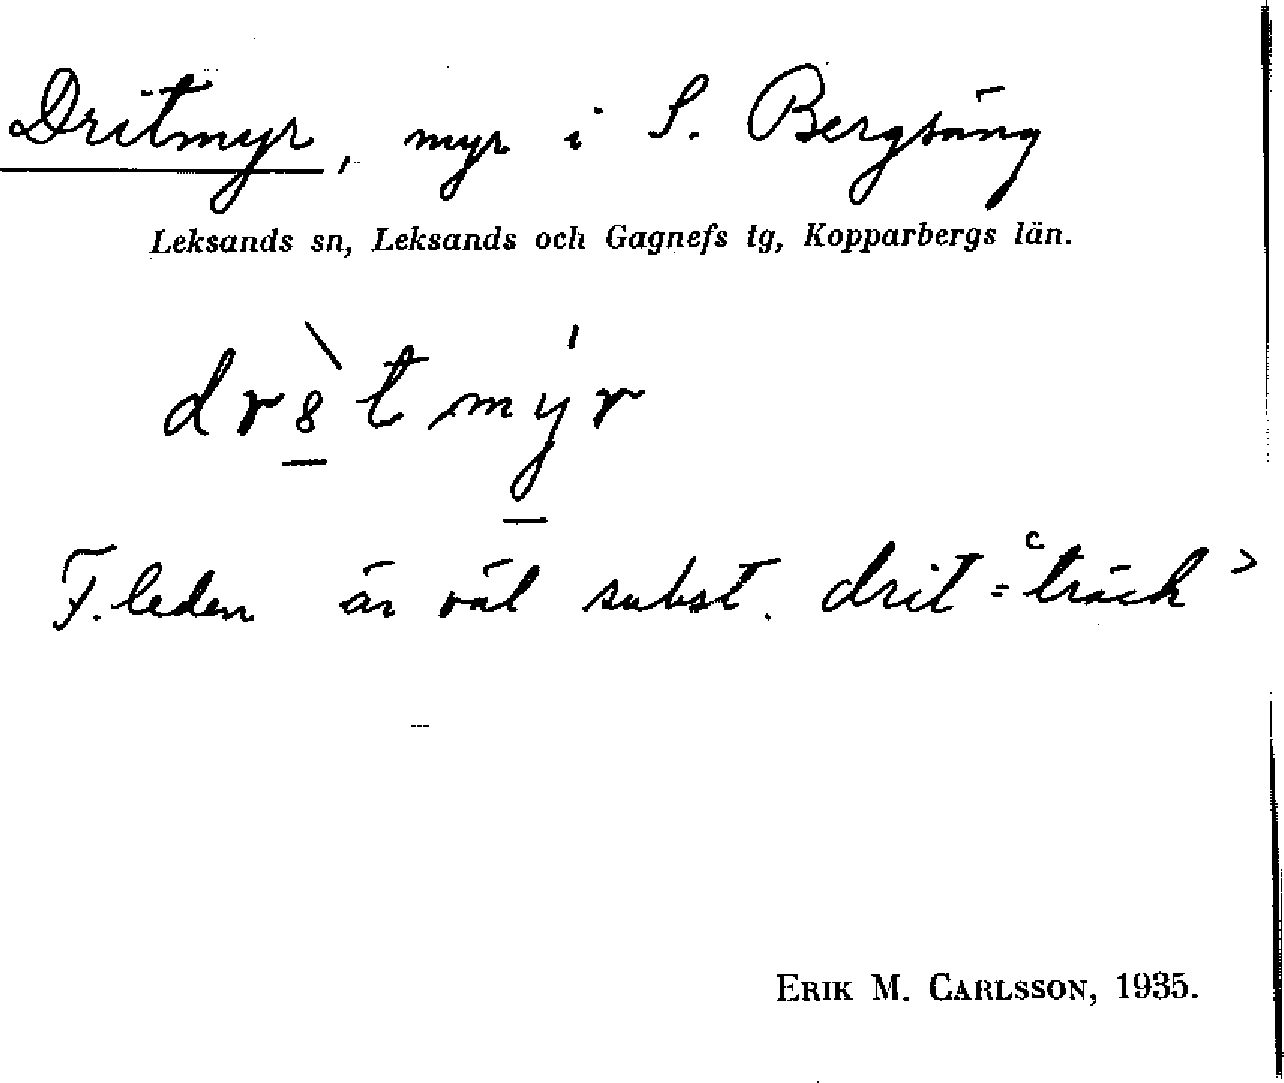 Dritmyr, myr i S. Bergsäng
Leksands sn, Leksands och Gagnefs tg, Kopparbergs län.
dr8̲̀t mý̲r
F. leden är väl subst. drit = ‘träck’
ERIK M. CARLSSON, 1935.